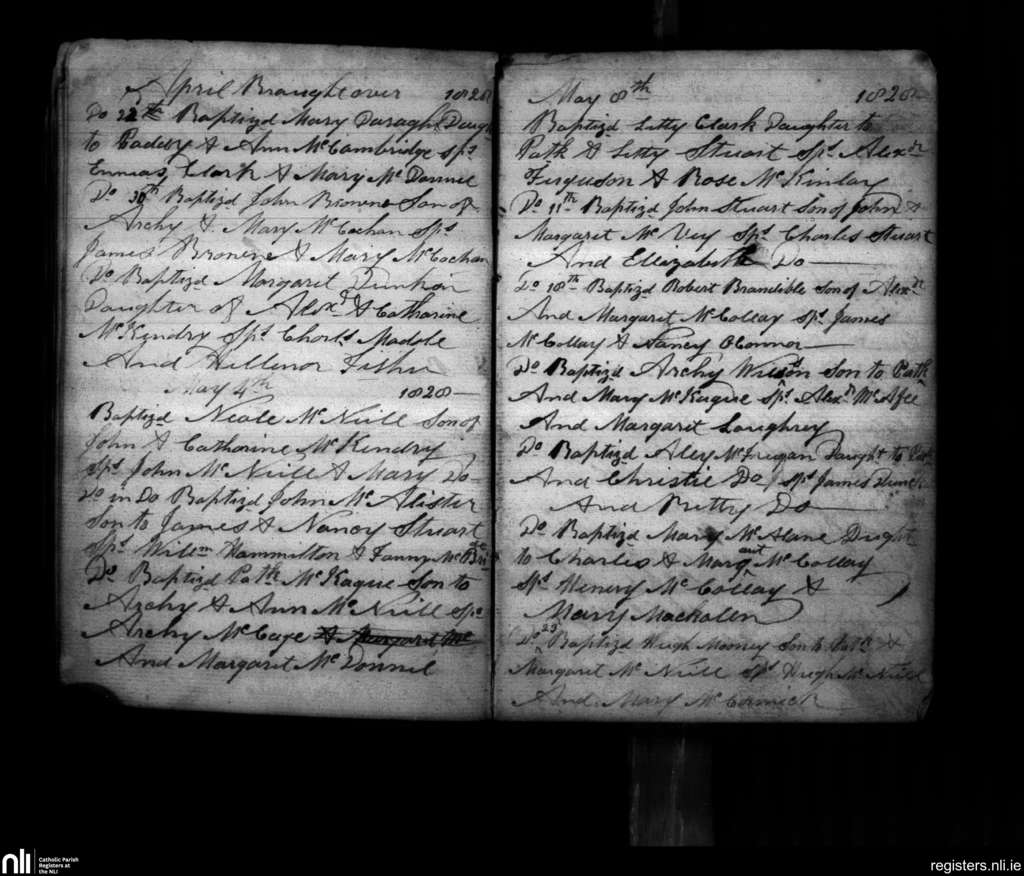 April Braught over 1828
Do 22th Baptizd Mary Daragh Daught
to Paddy & Ann McCambridge Sps
Enneas Clark & Mary Mc Donnel
Do 30th Baptizd John Browne Son of
Archy & Mary McCochan Sps
James Browne & Mary McCochan
Do Baptizd Margarit
Daughter of Alexr & Catharine
McKendry Sps Chorls
And Hillenor
May 4th 1828
Baptizd Neale Mc Neill Son of
John & Catharine McKendry
Sps John Mc Neill & Mary Do
Do in Do Baptizd John Mc Alister
Son to James & Nancy Stuart
Sps Willm Hammilton & Fanny Mc
Do Baptizd Patk McKague Son to
Archy & Ann Mc Neill Sps
Archy McCage & Margarit Mc
And Margarit Mc Donnel
May 8th 1828
Baptizd Letty Clark Daughter to
Patk & Letty Stuart Sps Alexdr
Ferguson & Rose McKinlay
Do 11th Baptizd John Stuart Son of John &
Margaret Mc Vey Sps Charles Stuart
And Ellezabeth Do
Do 18th Baptizd Robert Brandible Son of Alexdr
And Margarit McCollay Sps James
McCollay & Nancy OConnor
Do Baptizd Archy Wilson Son to Patk
And Mary McKague Sps Alexr McAfee
And Margarit Loughrey
Do Baptizd Daught to
And Christie Do Sps James
And Betty Do
Do Baptizd Mary Mc Alane Dught
to Charles & Margarit McCollay
Sps Henery McCollay &
Mary Mackalen
Do 25 Baptizd Hugh Mooney Son to Patk &
Margarit Mc Neill Sps Hugh Mc Neill
And Mary McCormick
nli
Catholic Parish
Registers at
the NLI
registers.nli.ie